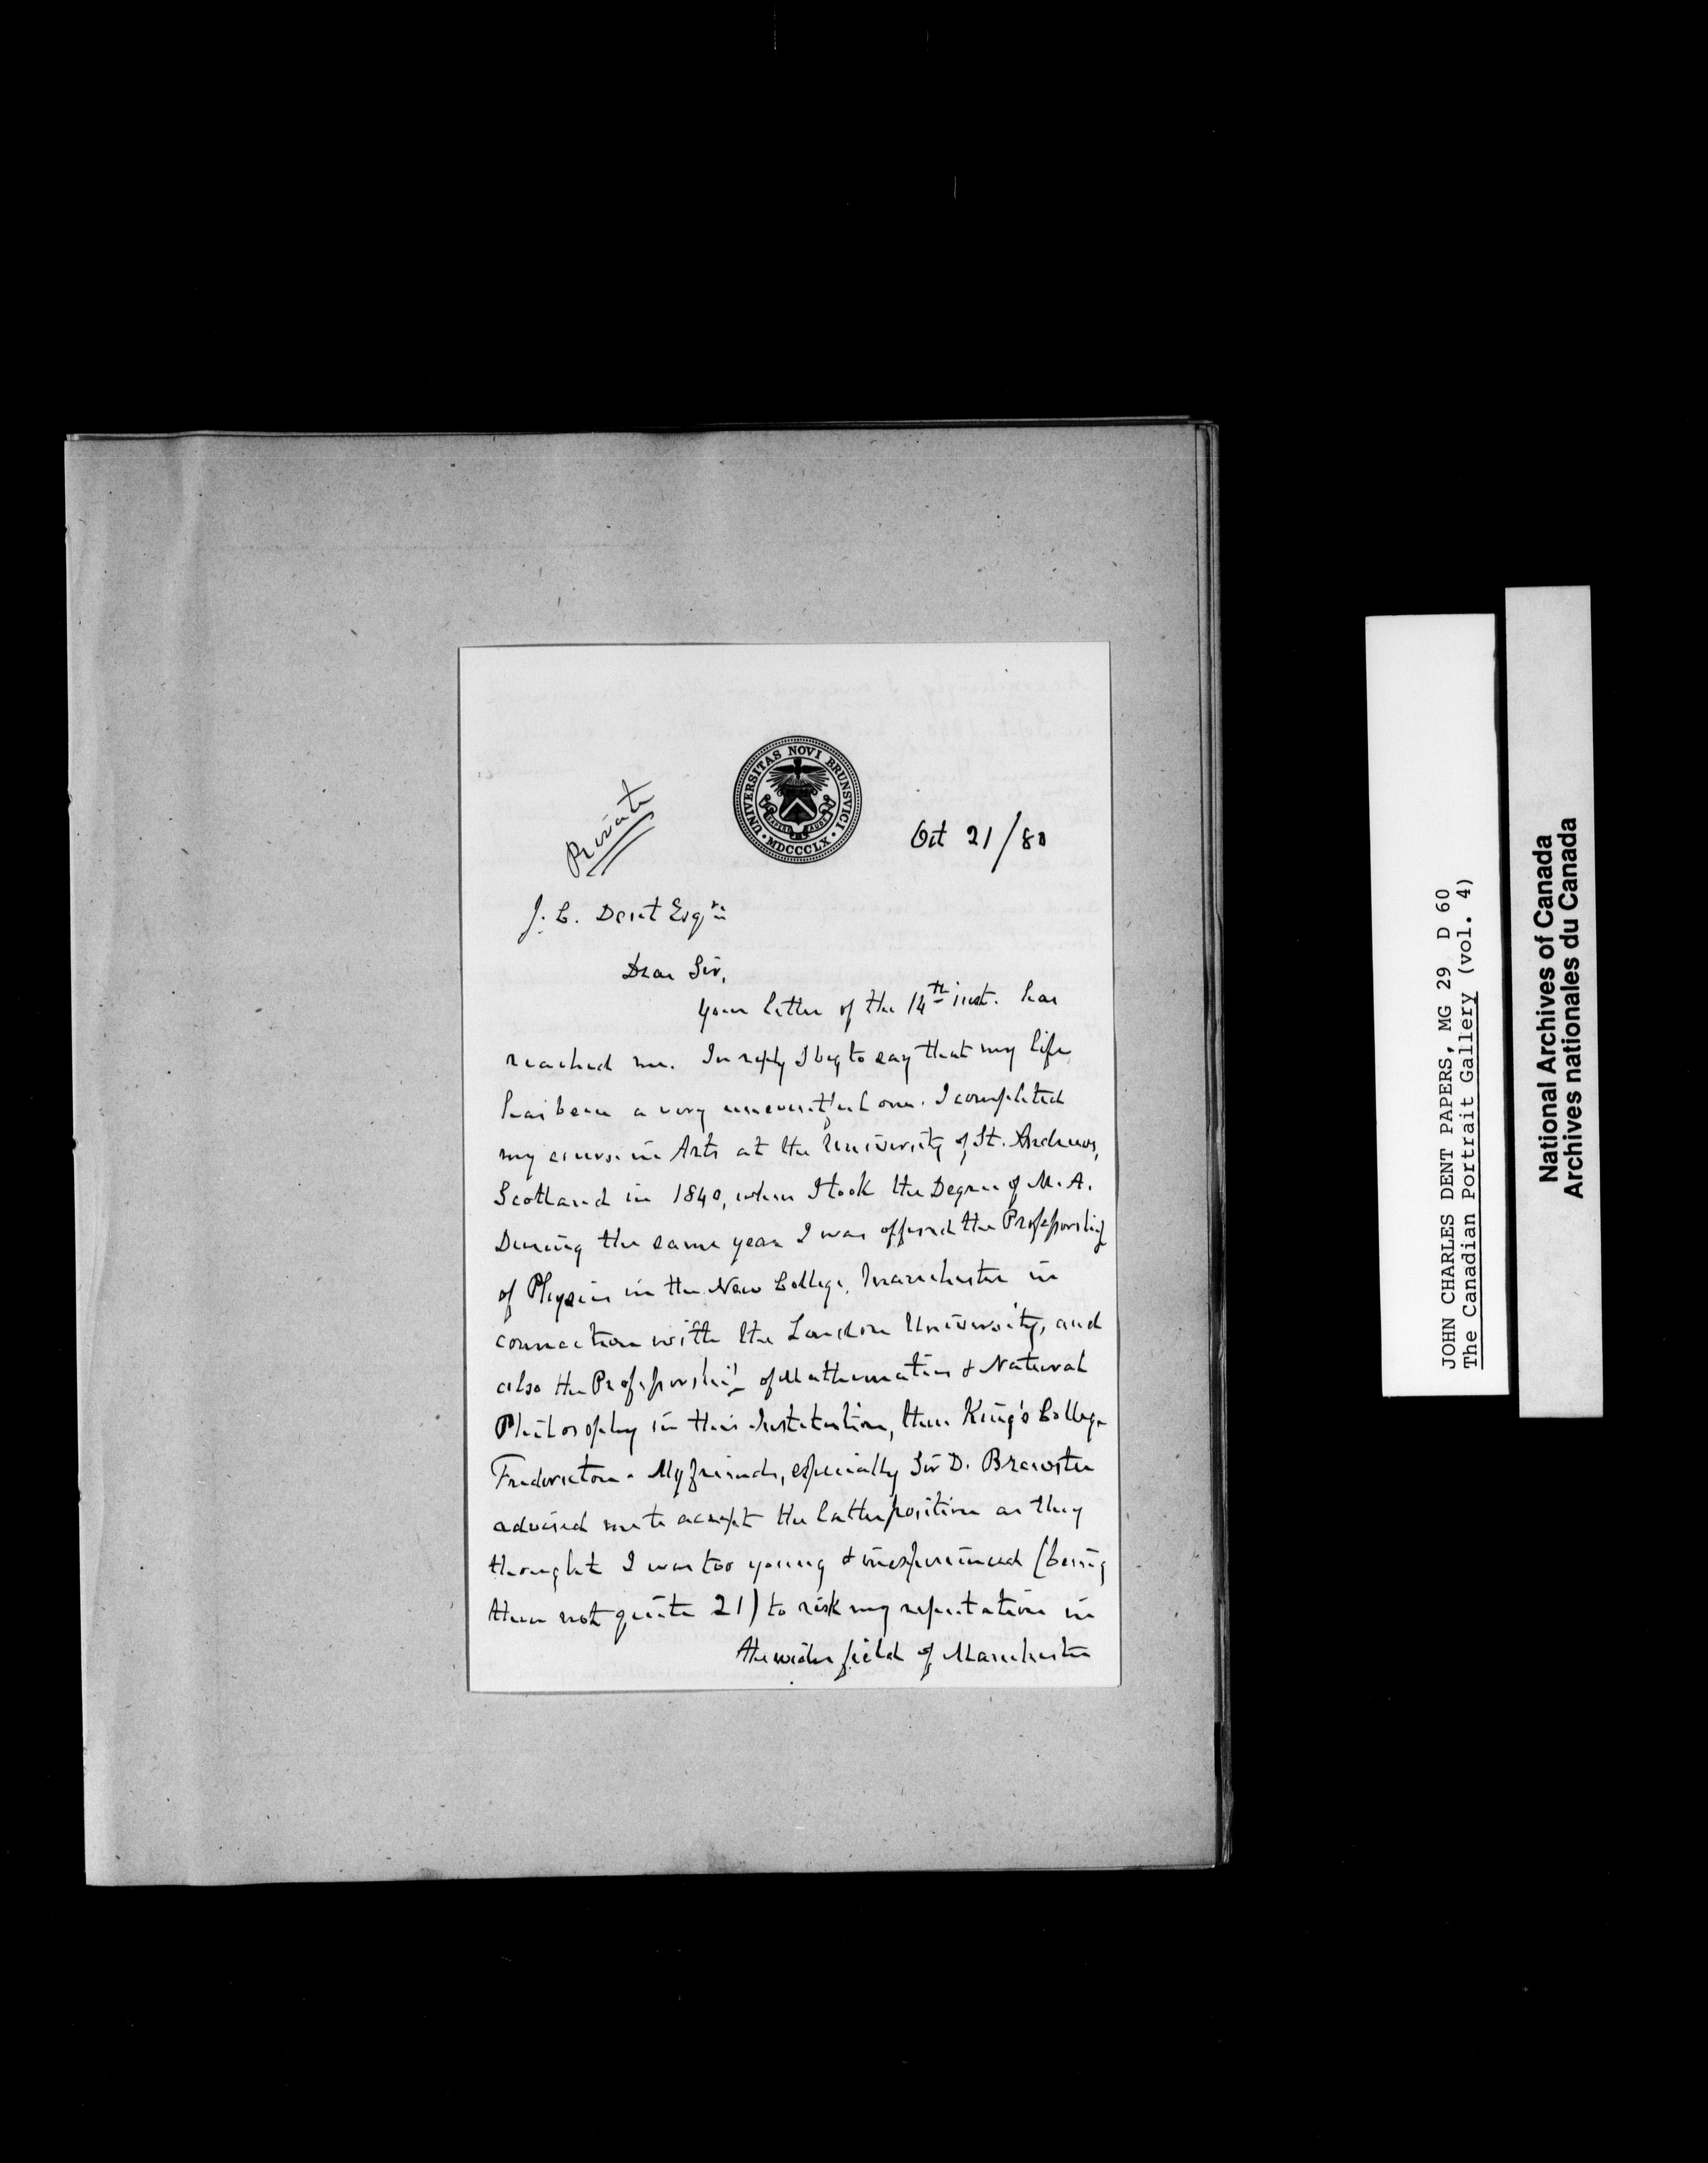 UNIVERSITAS NOVI BRUNSVICI
MDCCCLX
SAPERE AUDE
Private
Oct 21/80
J. C. Dent Esqre
Dear Sir,
Your letter of the 14th inst. has
reached me. In reply I beg to say that my life
has been a very uneventful one. I completed
my course in Arts at the University of St. Andrews,
Scotland in 1840, when I took the Degree of M.A.
During the same year I was offered the Professorship
of Physics in the New College, Manchester in
connection with the London University, and
also the Professorship of Mathematics & Natural
Philosophy in this Institution, then King's College
Fredericton. My friends, especially Sir D. Brewster
advised me to accept the latter position as they
thought I was too young & inexperienced (being
then not quite 21) to risk my reputation in
the wider field of Manchester
JOHN CHARLES DENT PAPERS, MG 29 D 60
The Canadian Portrait Gallery (vol. 4)
National Archives of Canada
Archives nationales du Canada